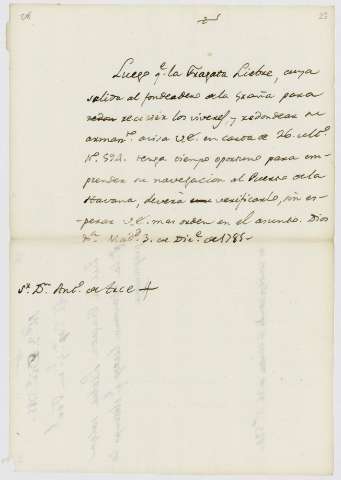 Luego q.e la Fragata Liebre, cuya
salida al fondeadero de la Graña para
recivir los viveres, y redondear su
armam.to avisa V.E. en carta de 26 ulto.
N.o 524. tenga tiempo oportuno para em-
prender su navegacion al Puerto de la
Havana, deverá verificarlo, sin es-
perar V.E. mas orden en el asunto. Dios
3. de Dic.e de 1785.
S.r D.n Ant.o de Arce